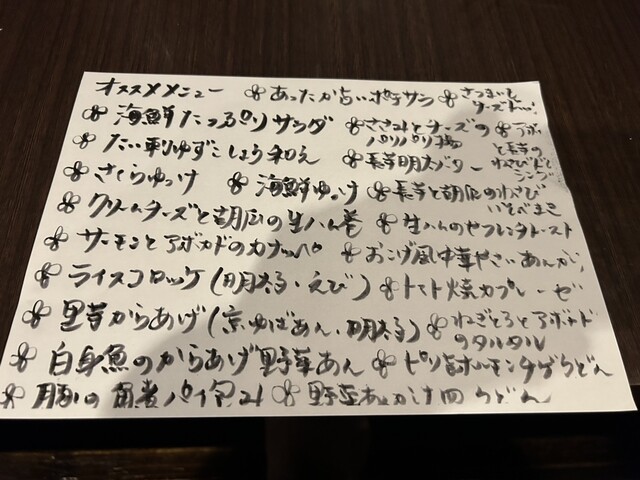 オススメメニュー
あったか旨いポテサン
さつまいも
チーズ
海鮮たっぷりサラダ
ささみとチーズの
パリパリ揚
アボ
と長芋の
わさびドレ
シング
たい刺ゆずこしょう和え
長芋明太バター
さくらゆっけ
海鮮ゆっけ
長芋と胡瓜のわさび
いそべまき
クリームチーズと胡瓜の生ハム巻
生ハムのせフレンチトースト
サーモンとアボカドのカナッペ
おこげ風中華やさいあんかけ
ライスコロッケ(明太子・えび)
トマト焼カプレーゼ
里芋からあげ(京ゆばあん・明太子)
ねぎとろとアボカド
のタルタル
白身魚のからあげ野菜あん
ピリ旨ホルモンチゲうどん
豚の角煮パイ包み
野菜あんかけ肉うどん